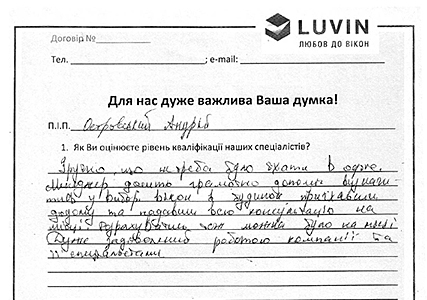 LUVIN
ЛЮБОВ ДО ВІКОН
Договір №
Тел. ; e-mail:
Для нас дуже важлива Ваша думка!
П.І.П. Островський Андрій
1. Як Ви оцінюєте рівень кваліфікації наших спеціалістів?
Зручно, що не треба було їхати в офіс.
Менеджер досить грамотно допоміг визначи-
тись у виборі вікон в будинок приїхавши
додому та надавши всю консультацію на
місці. Розрахуватись теж можна було на місці
Дуже задоволений роботою компанії та
її спеціалістами.